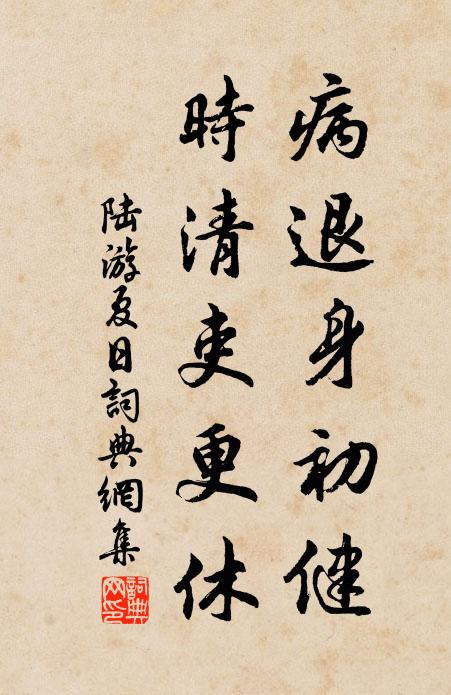 病退身初健
時清吏更休
陆游夏日詞典網集
詞典
网印